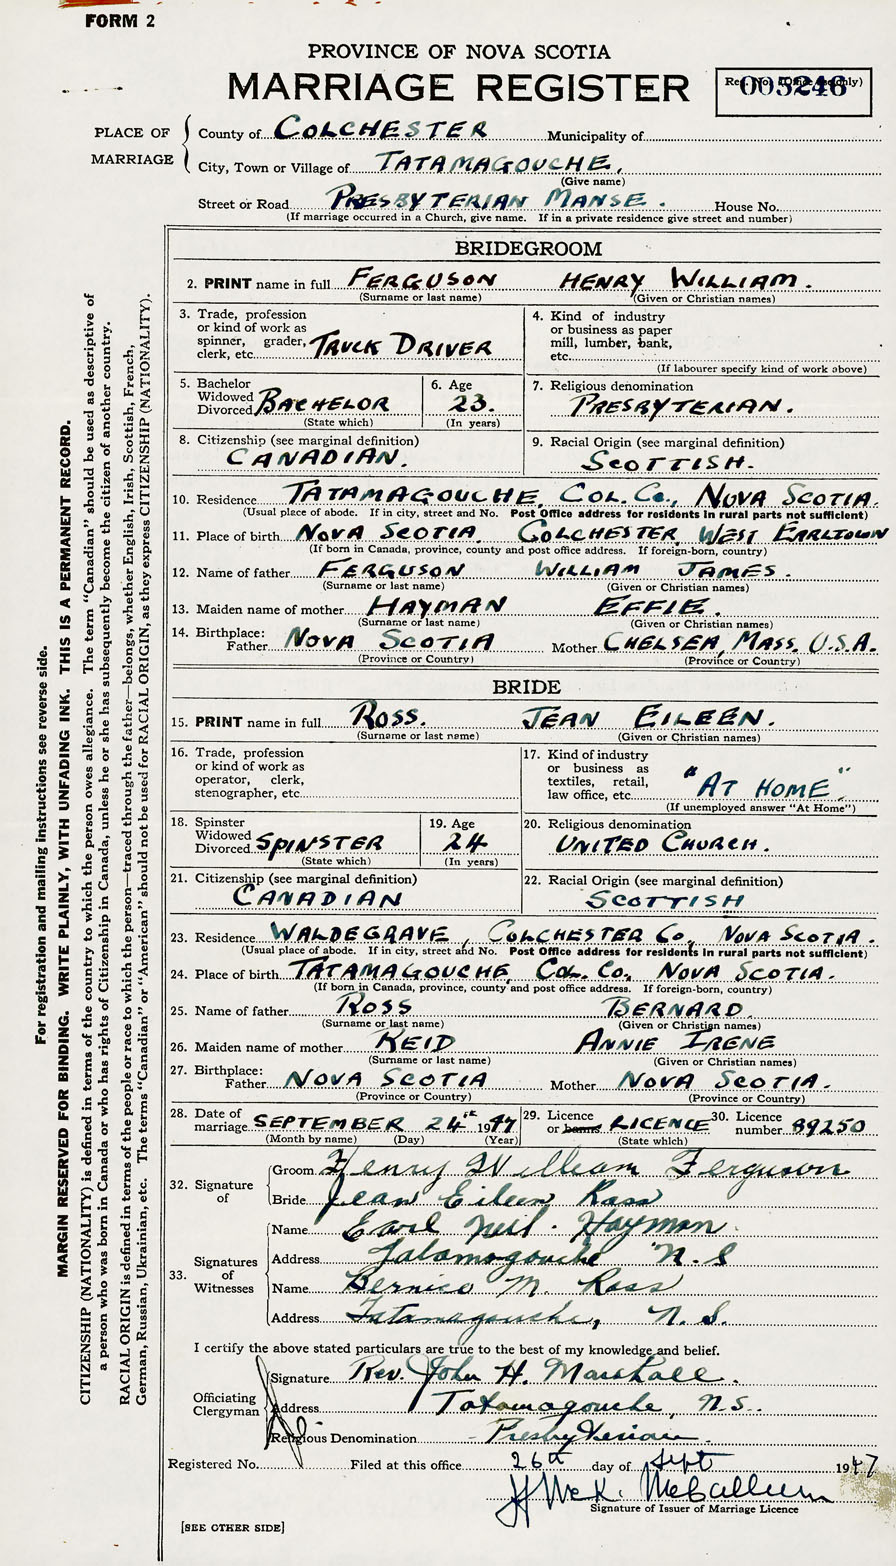 FORM 2
PROVINCE OF NOVA SCOTIA
MARRIAGE REGISTER
Reg. No. (Office use only)
005246
PLACE OF MARRIAGE
County of COLCHESTER Municipality of
City, Town or Village of TATAMAGOUCHE.
(Give name)
Street or Road PRESBYTERIAN MANSE. House No.
(If marriage occurred in a Church, give name. If in a private residence give street and number)
BRIDEGROOM
2. PRINT name in full FERGUSON HENRY WILLIAM.
(Surname or last name) (Given or Christian names)
3. Trade, profession
or kind of work as
spinner, grader,
clerk, etc. TRUCK DRIVER
4. Kind of industry
or business as paper
mill, lumber, bank,
etc.
(If labourer specify kind of work above)
5. Bachelor
Widowed
Divorced BACHELOR
(State which)
6. Age
23.
(In years)
7. Religious denomination
PRESBYTERIAN.
8. Citizenship (see marginal definition)
CANADIAN.
9. Racial Origin (see marginal definition)
SCOTTISH.
10. Residence TATAMAGOUCHE, COL. CO., NOVA SCOTIA.
(Usual place of abode. If in city, street and No. Post Office address for residents in rural parts not sufficient)
11. Place of birth NOVA SCOTIA COLCHESTER, WEST EARLTOWN
(If born in Canada, province, county and post office address. If foreign-born, country)
12. Name of father FERGUSON WILLIAM JAMES.
(Surname or last name) (Given or Christian names)
13. Maiden name of mother HAYMAN EFFIE.
(Surname or last name) (Given or Christian names)
14. Birthplace:
Father NOVA SCOTIA Mother CHELSEA, MASS. U.S.A.
(Province or Country) (Province or Country)
BRIDE
15. PRINT name in full ROSS. JEAN EILEEN.
(Surname or last name) (Given or Christian names)
16. Trade, profession
or kind of work as
operator, clerk,
stenographer, etc.
17. Kind of industry
or business as
textiles, retail,
law office, etc. "AT HOME".
(If unemployed answer "At Home")
18. Spinster
Widowed
Divorced SPINSTER
(State which)
19. Age
24
(In years)
20. Religious denomination
UNITED CHURCH.
21. Citizenship (see marginal definition)
CANADIAN
22. Racial Origin (see marginal definition)
SCOTTISH
23. Residence WALDEGRAVE, COLCHESTER CO, NOVA SCOTIA.
(Usual place of abode. If in city, street and No. Post Office address for residents in rural parts not sufficient)
24. Place of birth TATAMAGOUCHE, COL. CO. NOVA SCOTIA.
(If born in Canada, province, county and post office address. If foreign-born, country)
25. Name of father ROSS BERNARD.
(Surname or last name) (Given or Christian names)
26. Maiden name of mother REID ANNIE IRENE
(Surname or last name) (Given or Christian names)
27. Birthplace:
Father NOVA SCOTIA Mother NOVA SCOTIA.
(Province or Country) (Province or Country)
28. Date of
marriage SEPTEMBER 24th 1947
(Month by name) (Day) (Year)
29. Licence
or banns LICENCE
(State which)
30. Licence
number 89250
32. Signature of
Groom Henry William Ferguson
Bride Jean Eileen Ross
33. Signatures of Witnesses
Name Earl Neil Hayman
Address Tatamagouche N.S
Name Bernice M. Ross
Address Tatamagouche, N.S.
I certify the above stated particulars are true to the best of my knowledge and belief.
Officiating Clergyman
Signature Rev. John H. Marshall.
Address Tatamagouche, N.S.
Religious Denomination Presbyterian.
Registered No. Filed at this office 26th day of Sept 1947
McK. McCallum
Signature of Issuer of Marriage Licence
[SEE OTHER SIDE]
For registration and mailing instructions see reverse side.
MARGIN RESERVED FOR BINDING. WRITE PLAINLY, WITH UNFADING INK. THIS IS A PERMANENT RECORD.
CITIZENSHIP (NATIONALITY) is defined in terms of the country to which the person owes allegiance. The term "Canadian" should be used as descriptive of
a person who was born in Canada or who has rights of Citizenship in Canada, unless he or she has subsequently become the citizen of another country.
RACIAL ORIGIN is defined in terms of the people or race to which the person—traced through the father—belongs, whether English, Irish, Scottish, French,
German, Russian, Ukrainian, etc. The terms "Canadian" or "American" should not be used for RACIAL ORIGIN, as they express CITIZENSHIP (NATIONALITY).